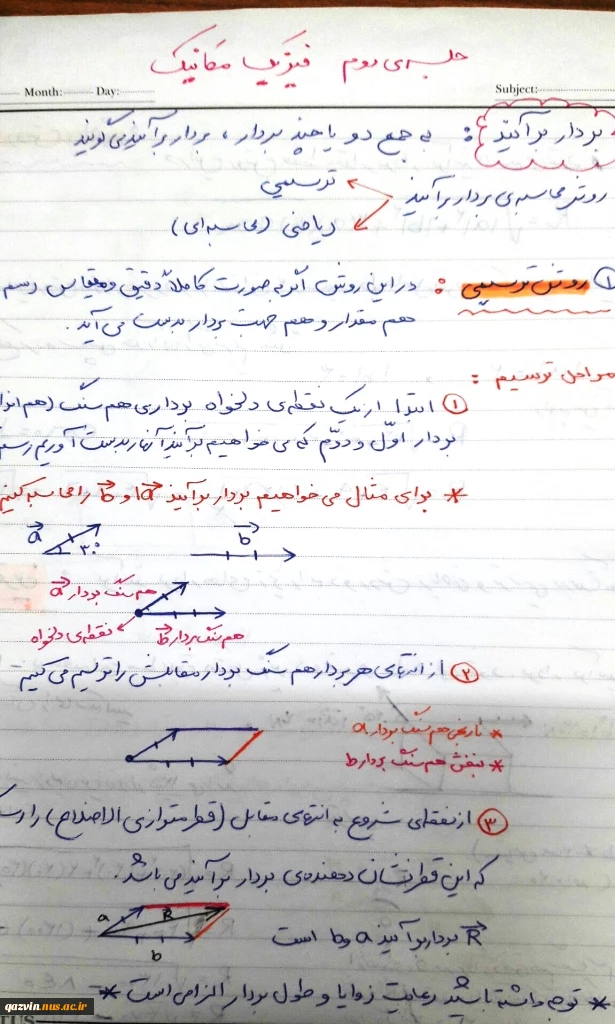 جلسه‌ی دوم فیزیک مکانیک
Month: Day: Subject:
بردار برآیند : به جمع دو یا چند بردار ، بردار برآیند می گویند
روش محاسبه‌ی بردار برآیند
ترسیمی
ریاضی (محاسبه‌ای)
① روش ترسیمی : در این روش اگر به صورت کاملاً دقیق و مقیاس رسم
هم مقدار و هم جهت بردار بدست می آید.
مراحل ترسیم :
① ابتدا از یک نقطه‌ی دلخواه برداری هم سنگ (هم
بردار اوّل و دوّم که می خواهیم برآیند آنها را بدست آوریم
* برای مثال می خواهیم بردار برآیند a و b را محاسبه کنیم
a ۳۰° b
هم سنگ بردار a
نقطه‌ی دلخواه هم سنگ بردار b
② از انتهای هر بردار هم سنگ بردار مقابلش را ترسیم می کنیم
* نارنجی هم سنگ بردار a
* بنفش هم سنگ بردار b
③ از نقطه‌ی شروع به انتهای مقابل (قطر متوازی الاضلاع) را
که این قطر نشان دهنده‌ی بردار برآیند می باشد.
a R b
R بردار برآیند a و b است
* توجه داشته باشید رعایت زوایا و طول بردار الزامی است *
qazvin.nus.ac.ir